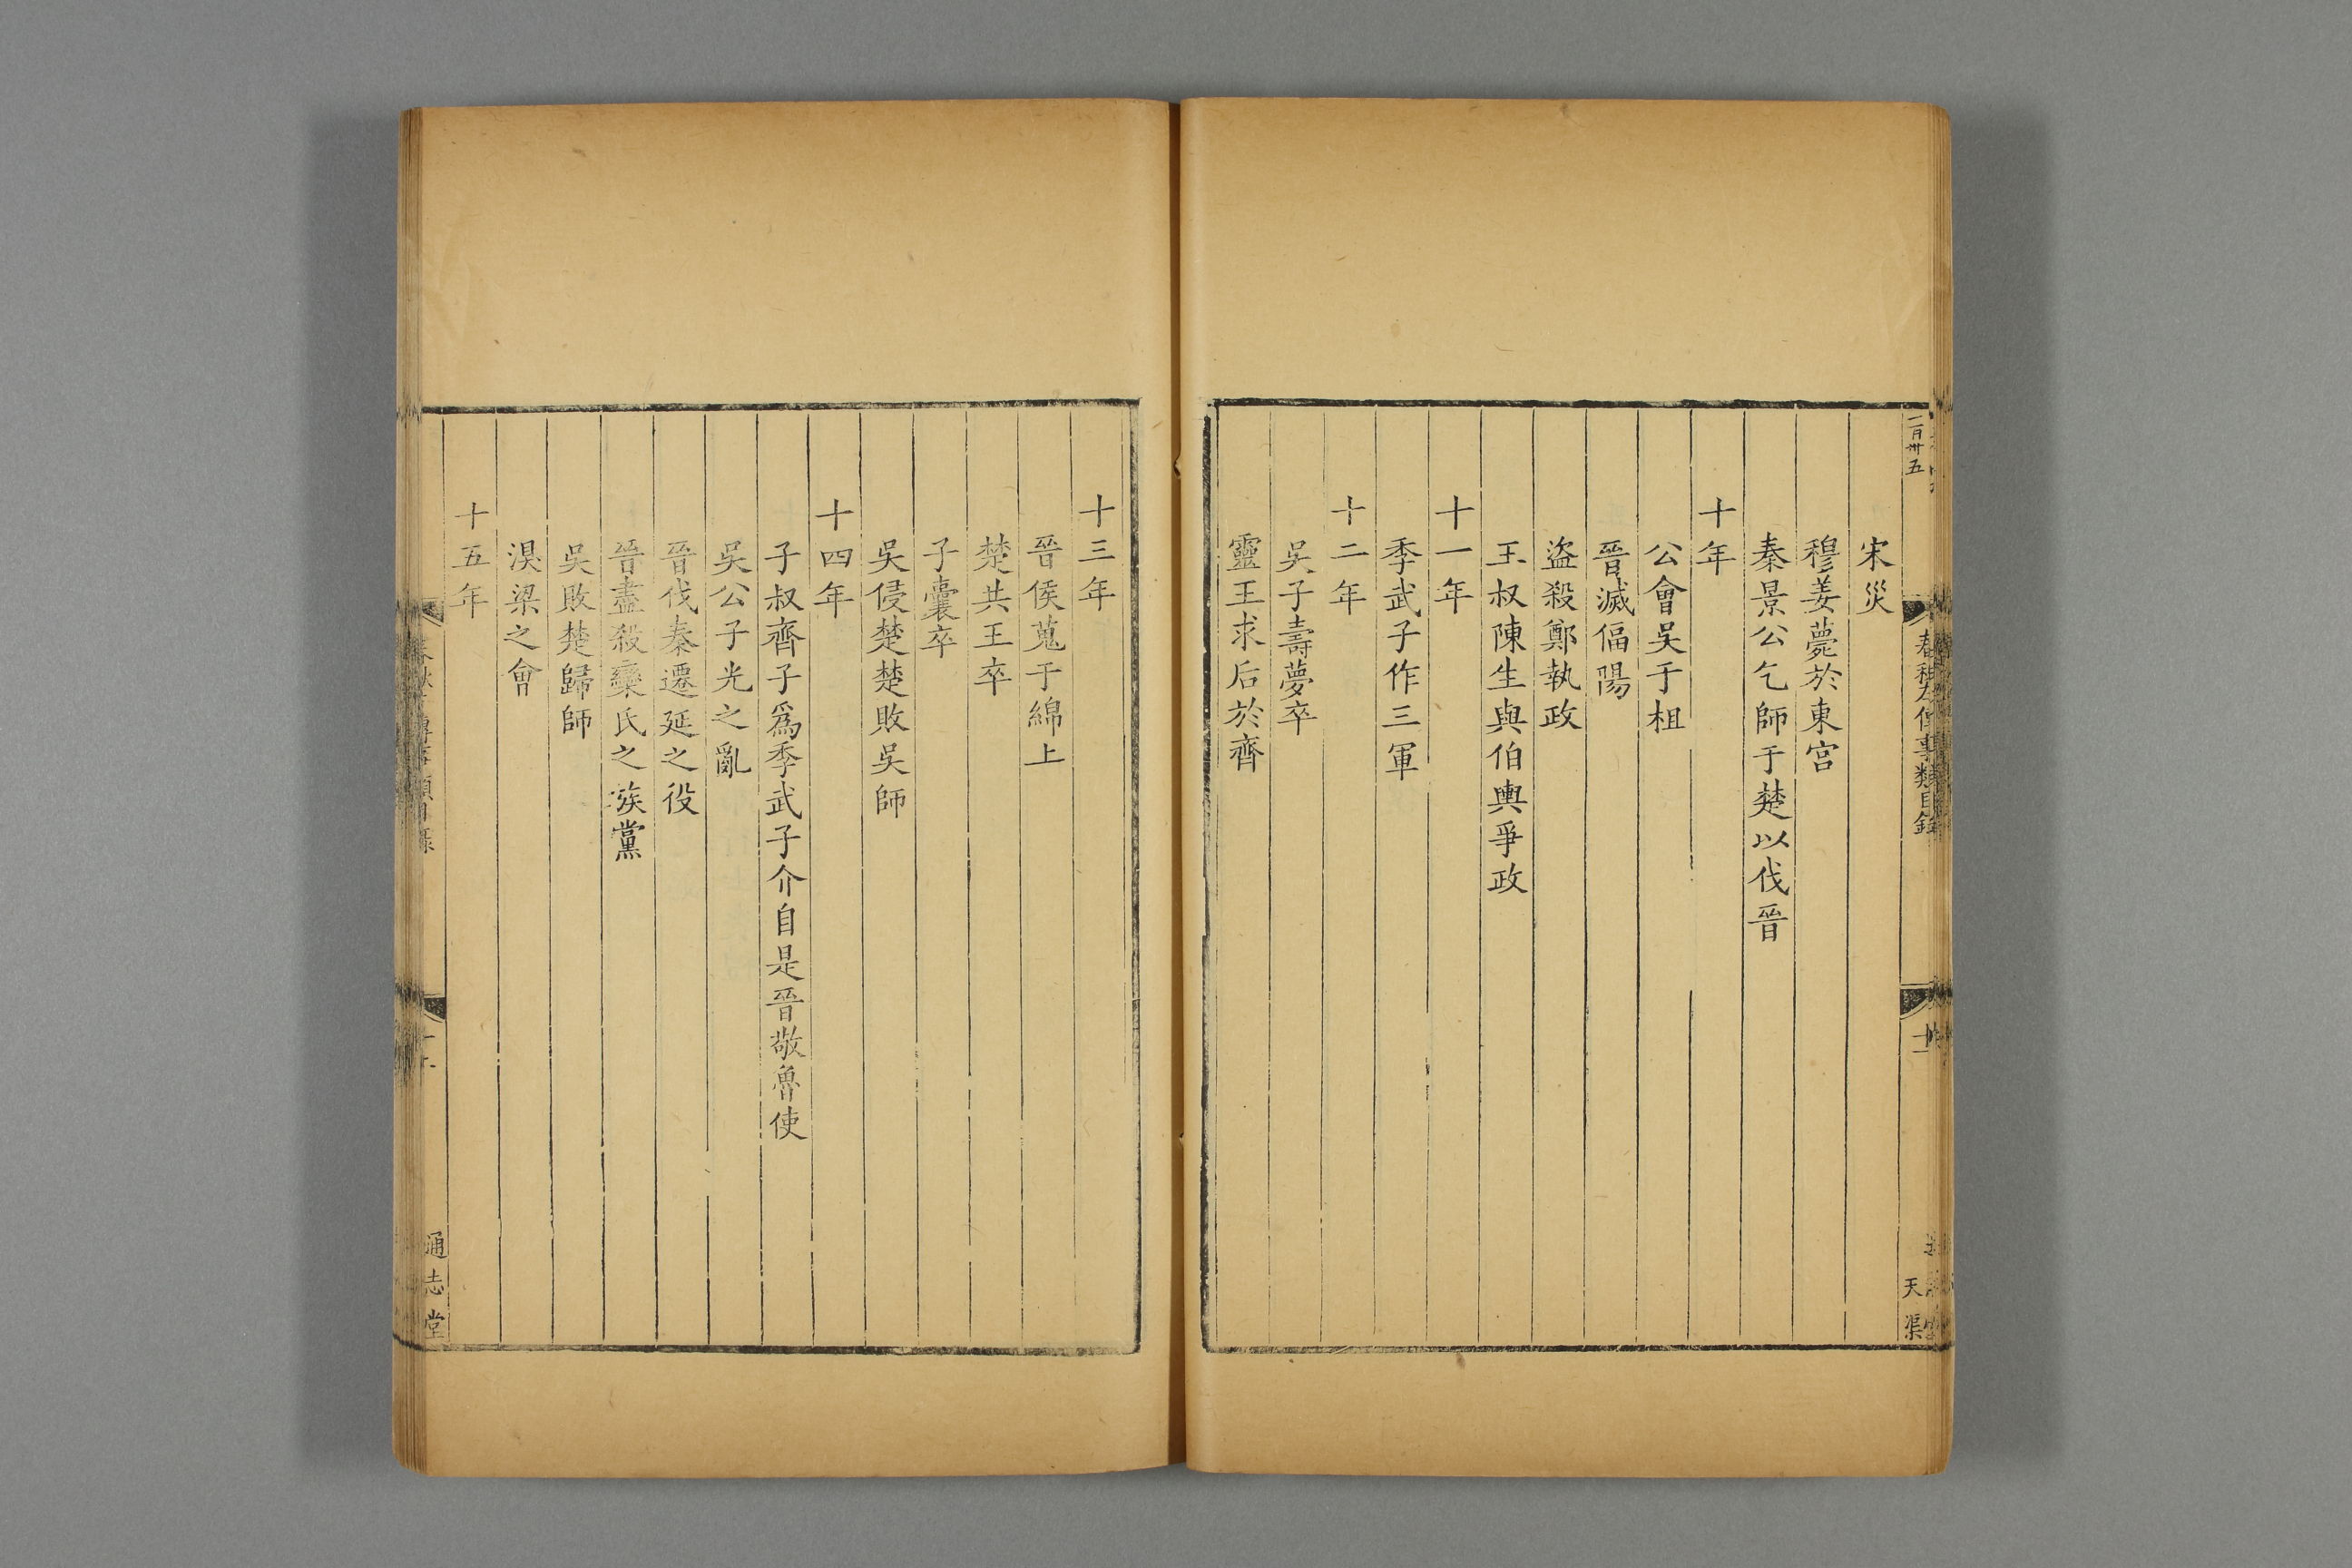 二百卅五
宋災
穆姜薨於東宮
秦景公乞師于楚以伐晉
十年
公會吳于柤
晉滅偪陽
盜殺鄭執政
王叔陳生與伯輿爭政
十一年
季武子作三軍
十二年
吳子壽夢卒
靈王求后於齊
春秋左傳事類目錄
十一
天渠
十三年
晉侯蒐于綿上
楚共王卒
子囊卒
吳侵楚楚敗吳師
十四年
子叔齊子爲季武子介自是晉敬魯使
吳公子光之亂
晉伐秦遷延之役
晉盡殺欒氏之族黨
吳敗楚歸師
湨梁之會
十五年
通志堂